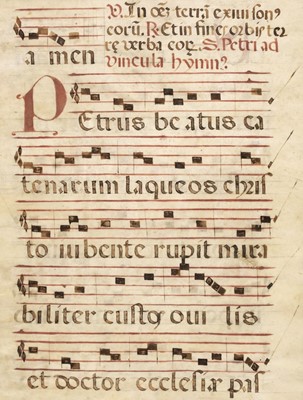 V. In oēm terrā exiuit son9
eorū. R. Et in fines orbis ter
a men
re verba eor. S. Petri ad
vincula hymn9
Petrus be atus ca
tenarum laqueos chris
to iubente rupit mira
biliter custos oui lis
et doctor ecclesiæ pas